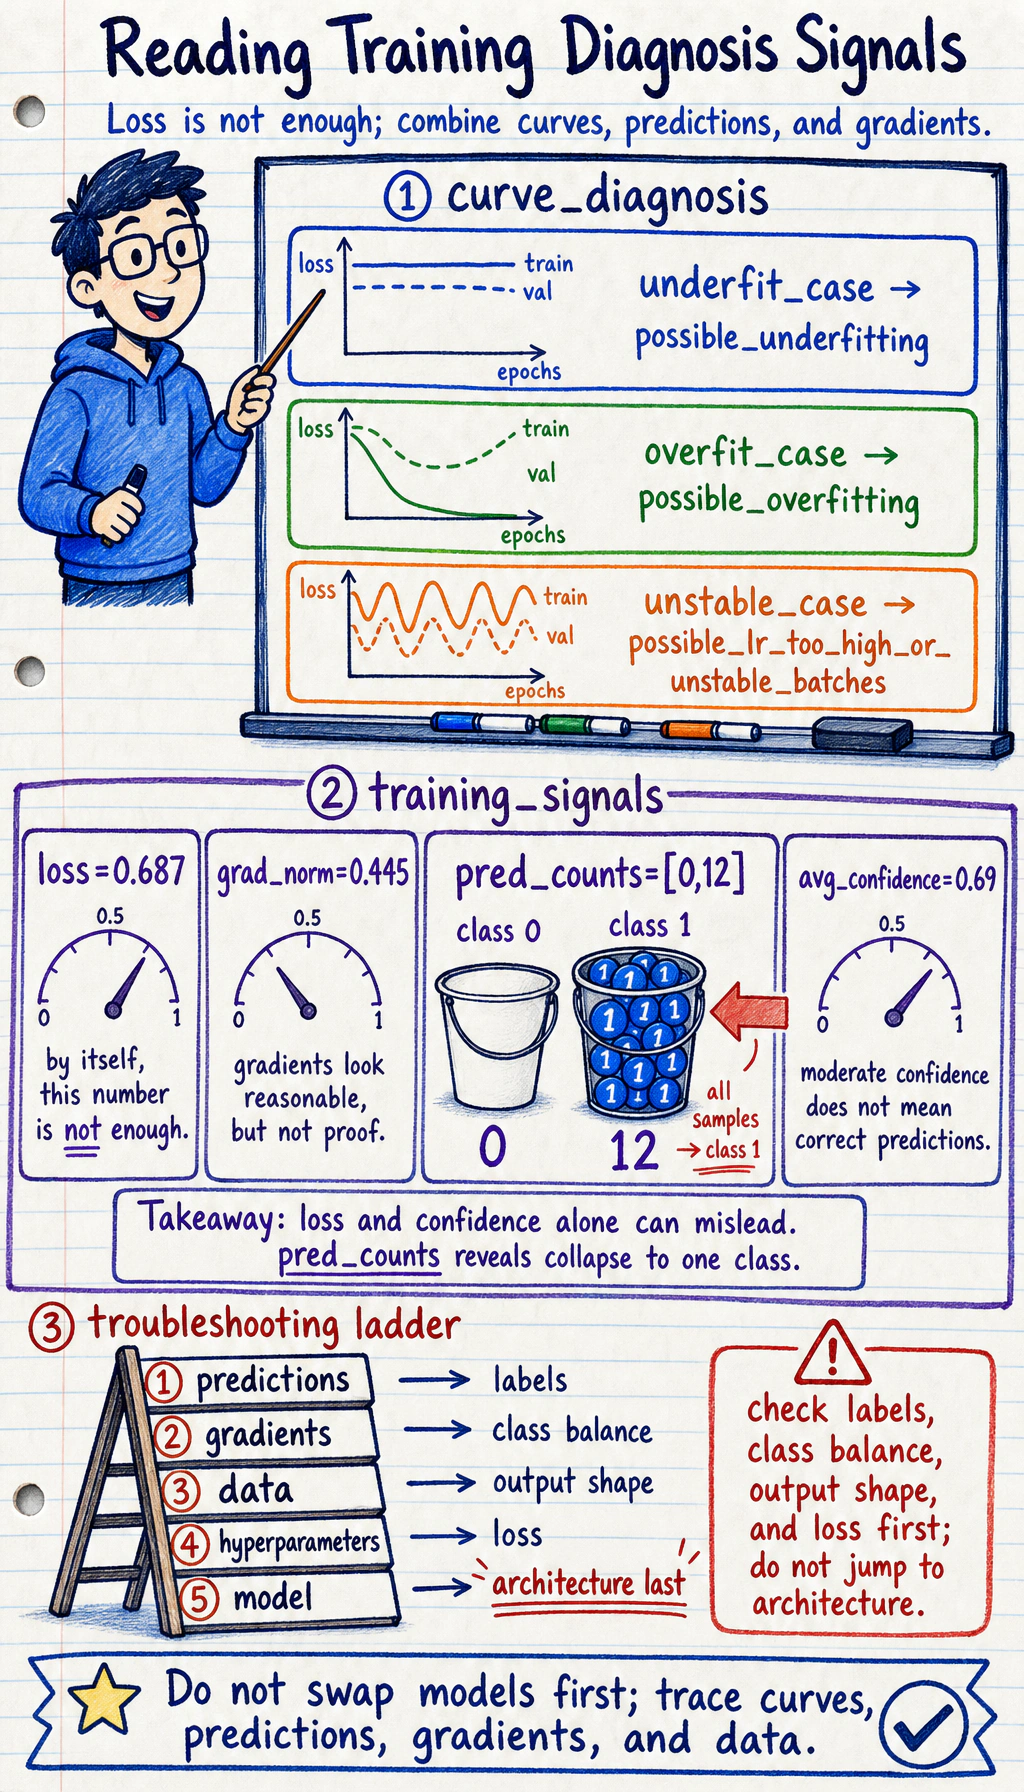 Reading Training Diagnosis Signals
Loss is not enough; combine curves, predictions, and gradients.
① curve_diagnosis
loss
train
val
epochs
underfit_case →
possible_underfitting
loss
train
val
epochs
overfit_case →
possible_overfitting
loss
train
val
epochs
unstable_case →
possible_lr_too_high_or_
unstable_batches
② training_signals
loss=0.687
0.5
0
1
by itself,
this number
is not enough.
grad_norm=0.445
0.5
0
1
gradients look
reasonable,
but not proof.
pred_counts=[0,12]
class 0
class 1
1 1 1
1 1 1
1
1 1 1
1 1 1
0
12
all
samples
→ class 1
avg_confidence=0.69
0.5
0
1
moderate confidence
does not mean
correct predictions.
Takeaway: loss and confidence alone can mislead.
pred_counts reveals collapse to one class.
③ troubleshooting ladder
① predictions → labels
② gradients → class balance
③ data → output shape
④ hyperparameters → loss
⑤ model → architecture last
!
check labels,
class balance,
output shape,
and loss first;
do not jump to
architecture.
Do not swap models first; trace curves,
predictions, gradients, and data.